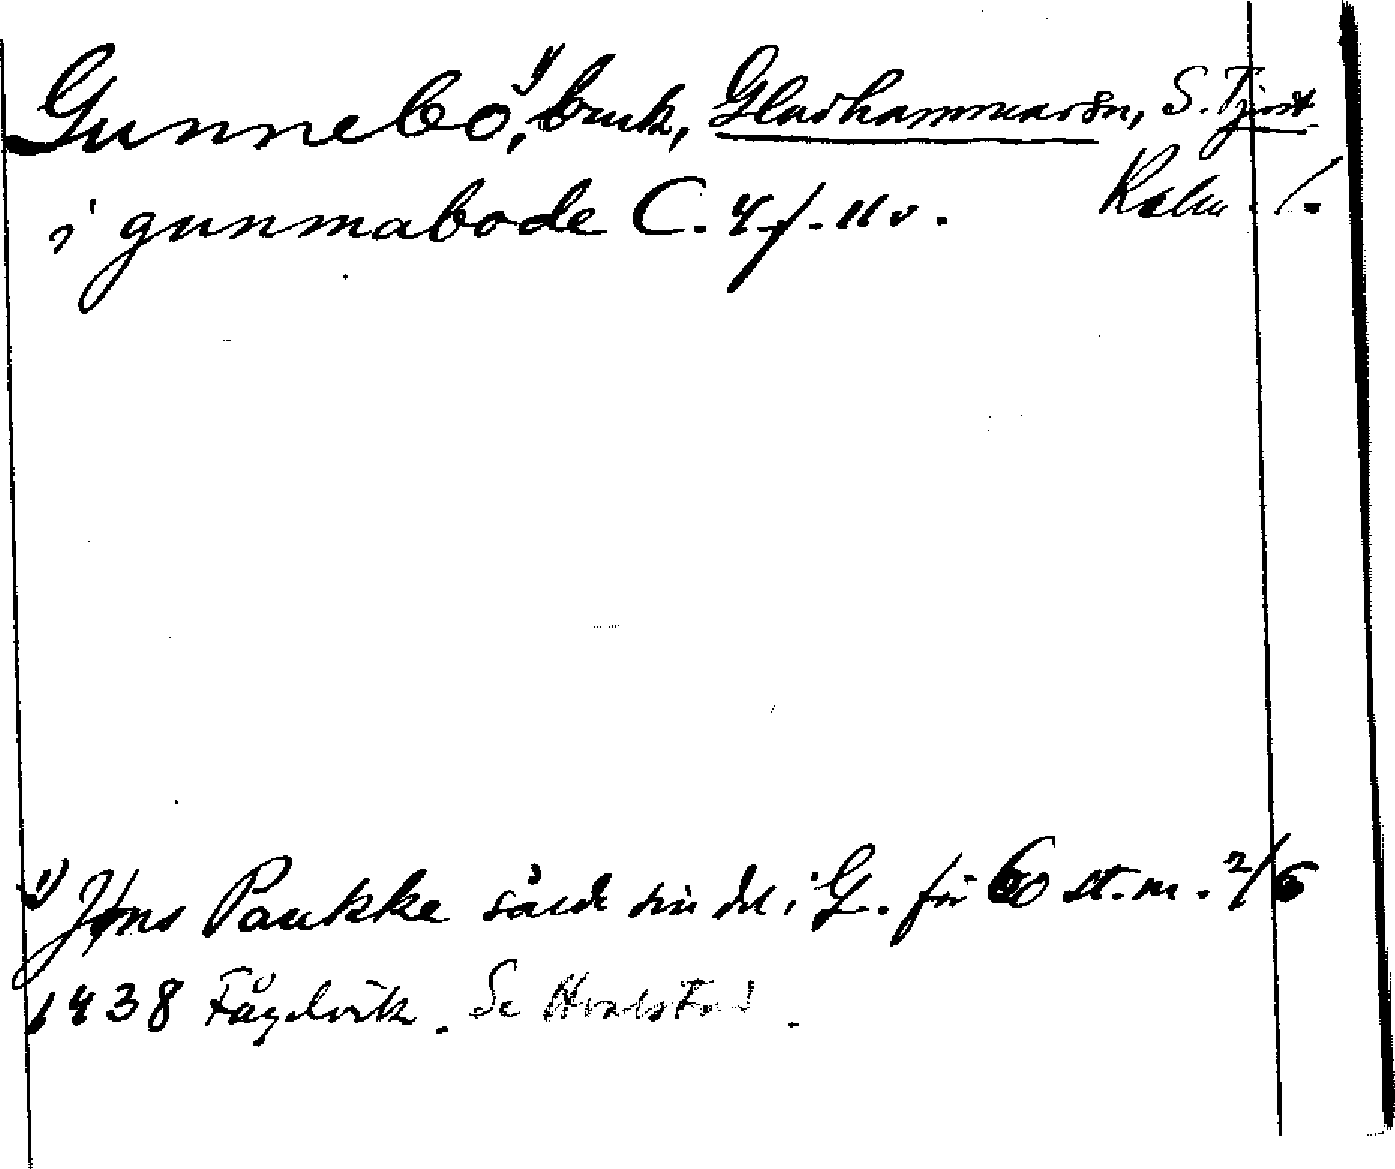 Gunnebo,¹⁾ bruk, Gladhammarsn, S. Tjust
i gunmabode C. 4 f. 11 v. Kalm. l.
1) Jöns Paukke sålde sin del i G. för 60 st. m. 2/6
1438 Fågelvik. Se Hvalstad.